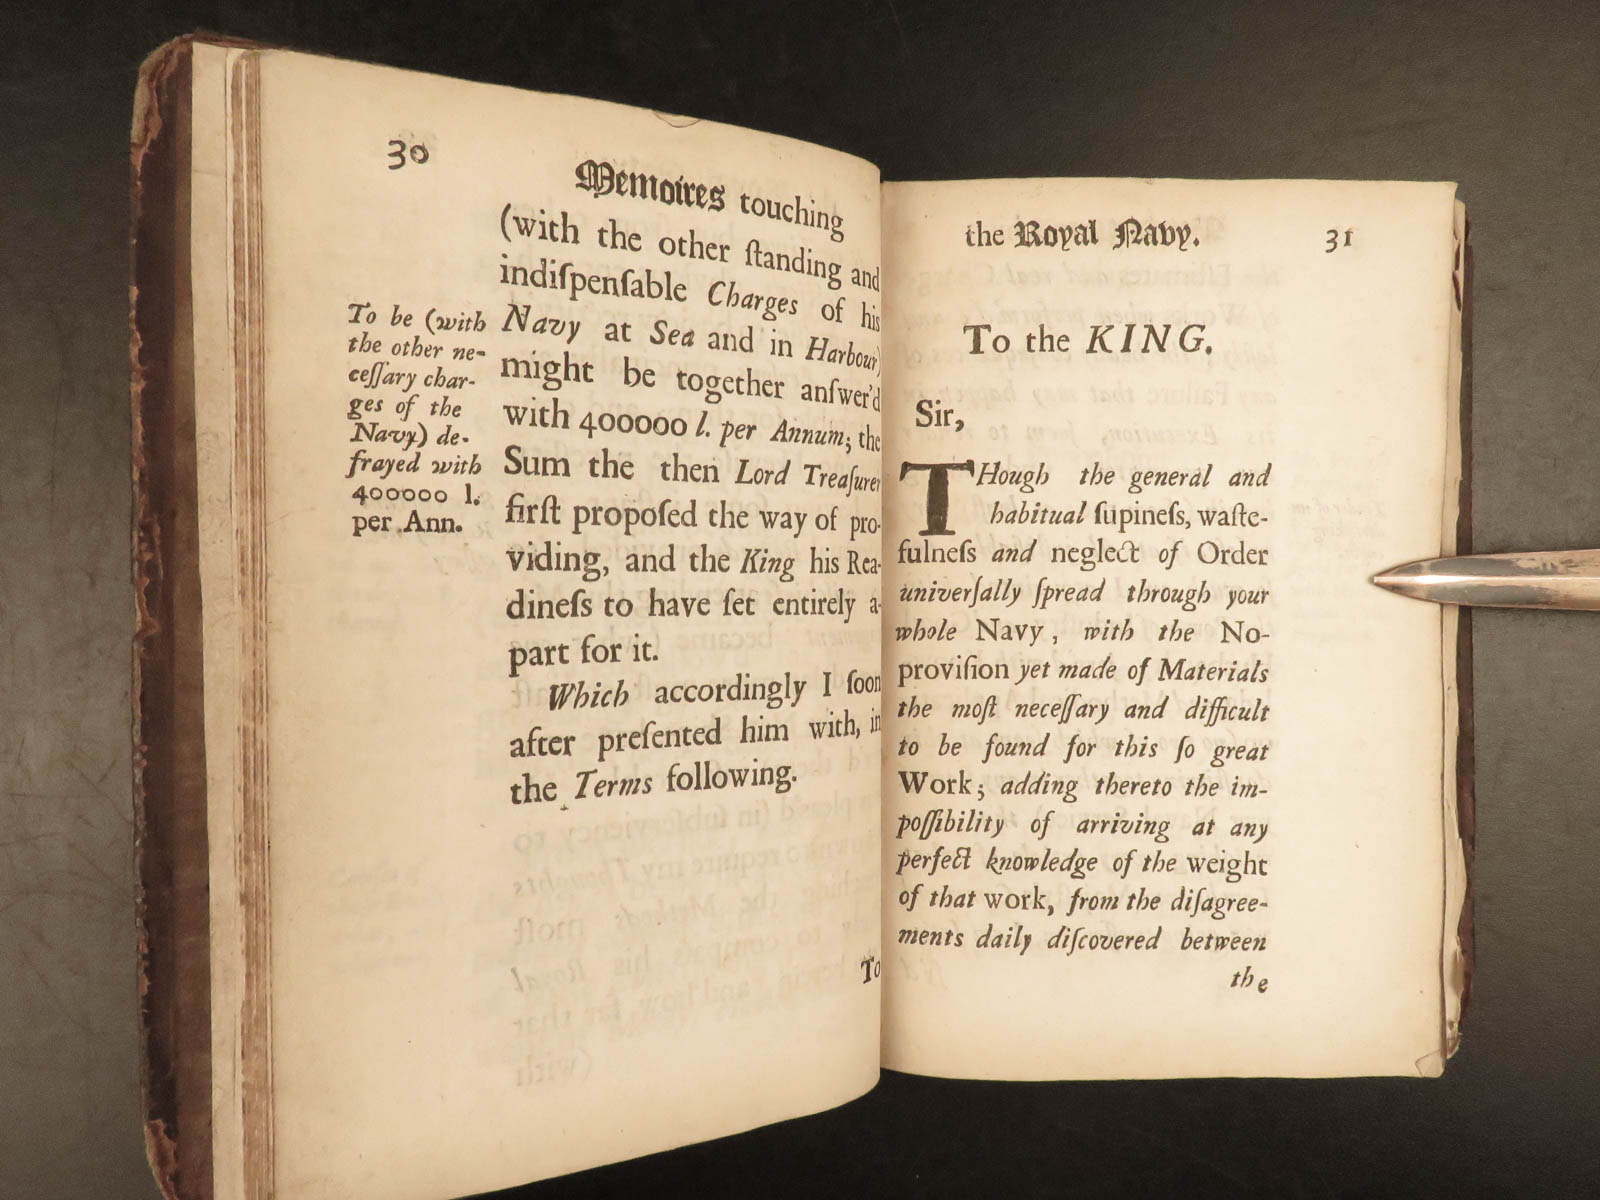 30
Memoires touching
(with the other ſtanding and
indiſpenſable Charges of his
Navy at Sea and in Harbour)
might be together anſwer'd
with 400000 l. per Annum; the
Sum the then Lord Treaſurer
firſt propoſed the way of pro-
viding, and the King his Rea-
dineſs to have ſet entirely a-
part for it.
Which accordingly I ſoon
after preſented him with, in
the Terms following.
To
To be (with
the other ne-
ceſſary char-
ges of the
Navy) de-
frayed with
400000 l.
per Ann.
the Royal Navy.
31
To the KING.
Sir,
THough the general and
habitual ſupineſs, waſte-
fulneſs and neglect of Order
univerſally ſpread through your
whole Navy, with the No-
proviſion yet made of Materials
the moſt neceſſary and difficult
to be found for this ſo great
Work; adding thereto the im-
poſſibility of arriving at any
perfect knowledge of the weight
of that work, from the diſagree-
ments daily diſcovered between
the